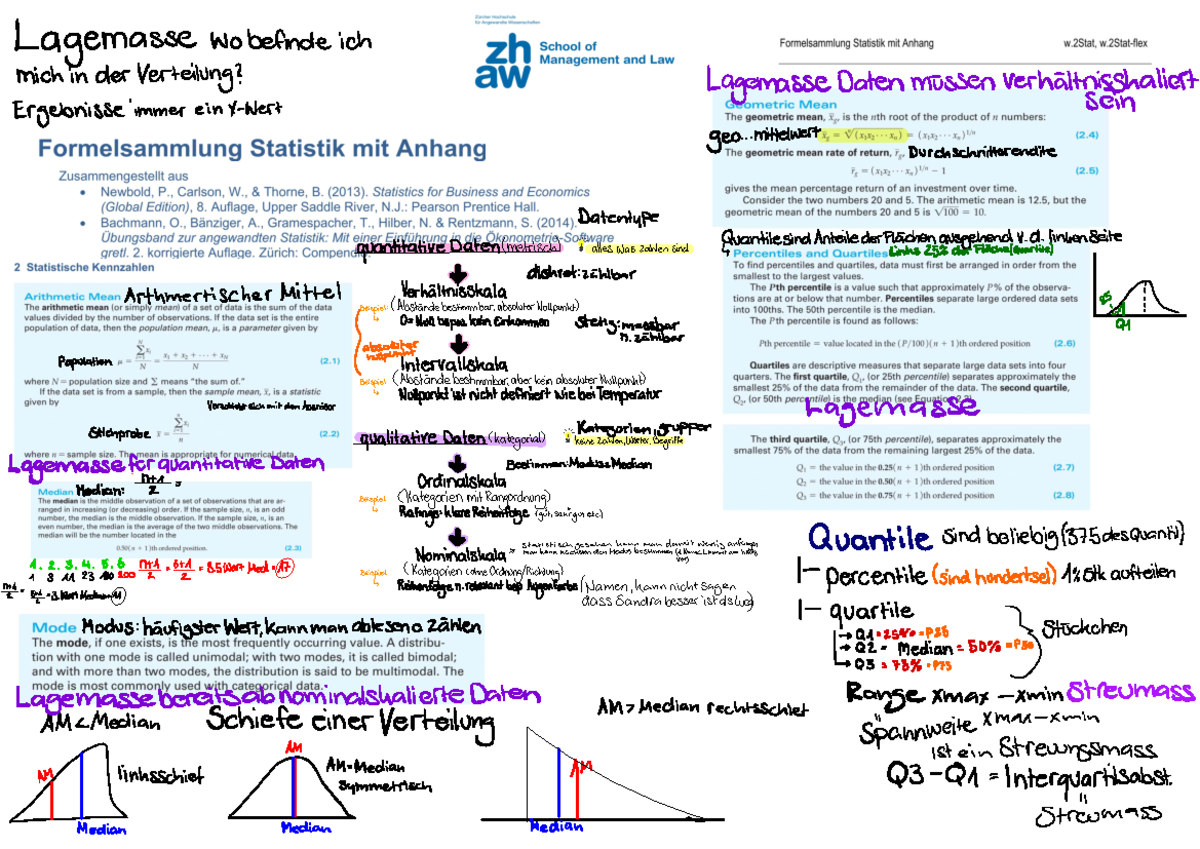 Lagemasse wo befinde ich
mich in der Verteilung?
Ergebnisse immer ein X-Wert
Zürcher Hochschule
für Angewandte Wissenschaften
zh
aw
School of
Management and Law
Formelsammlung Statistik mit Anhang
Zusammengestellt aus
• Newbold, P., Carlson, W., & Thorne, B. (2013). Statistics for Business and Economics
(Global Edition), 8. Auflage, Upper Saddle River, N.J.: Pearson Prentice Hall.
• Bachmann, O., Bänziger, A., Gramespacher, T., Hilber, N. & Rentzmann, S. (2014).
Übungsband zur angewandten Statistik: Mit einer Einführung in die Ökonometrie-Software
gretl. 2. korrigierte Auflage. Zürich: Compendi
2 Statistische Kennzahlen
Arithmetic Mean Arithmertischer Mittel
The arithmetic mean (or simply mean) of a set of data is the sum of the data
values divided by the number of observations. If the data set is the entire
population of data, then the population mean, μ, is a parameter given by
Population μ = ∑xᵢ / N = x₁ + x₂ + ··· + x_N / N (2.1)
where N = population size and Σ means "the sum of."
If the data set is from a sample, then the sample mean, x̄, is a statistic
given by
Stichprobe x̄ = ∑xᵢ / N (2.2)
where n = sample size. The mean is appropriate for numerical data.
Lagemasse für quantitative Daten
Median Median: n+1 / 2 =
The median is the middle observation of a set of observations that are ar-
ranged in increasing (or decreasing) order. If the sample size, n, is an odd
number, the median is the middle observation. If the sample size, n, is an
even number, the median is the average of the two middle observations. The
median will be number located in the
0.50(n + 1)th ordered position. (2.3)
1. 2. 3. 4. 5. 6
1 3 11 23 100 200 n+1 / 2 = 6+1 / 2 = 3.5 Wert Med = 17
n+1 / 2 = 5+1 / 2 = 3. Wert Median = 11
Mode Modus: häufigster Wert, kann man ablesen o zählen
The mode, if one exists, is the most frequently occurring value. A distribu-
tion with one mode is called unimodal; with two modes, it is called bimodal;
and with more than two modes, the distribution is said to be multimodal. The
mode is most commonly used with categorical data.
Lagemasse bereits ab nominalskalierte Daten
AM < Median Schiefe einer Verteilung
AM
linksschief
Median
AM
AM = Median
symmetrisch
Median
AM > Median rechtsschief
AM
Median
Datentype
quantitative Daten (metrisch) alles was zahlen sind
diskret: zählbar
Verhältnisskala
Beispiel (Abstände bestimmbar, absoluter Nollpunkt)
0 = Noll bspw. kein Einkommen
Stetig: messbar
n. zählbar
absoluter
nullpunkt
Intervallskala
Beispiel (Abstände bestimmbar, aber kein absoluter Nullpunkt)
Nollpunkt ist nicht definiert wie bei Temperatur
qualitative Daten (kategorial)
Kategorien, grupper
keine Zahlen, Wörter, Begriffe
Bestimmen: Modus + Median
Ordinalskala
Beispiel (Kategorien mit Rangordnung)
Ratings: klare Reihenfolge (gut, sehr gut etc)
Nominalskala
Beispiel (Kategorien ohne Ordnung/Richtung)
Reihenfolge n. relevant bsp Augenfarbe (Namen, kann nicht sagen
dass Sandra besser ist als Luc)
Formelsammlung Statistik mit Anhang w.2Stat, w.2Stat-flex
Lagemasse Daten müssen verhältnisskaliert
sein
Geometric Mean
The geometric mean, x̄_g, is the nth root of the product of n numbers:
geo... mittelwert x̄_g = ⁿ√(x₁x₂···xₙ) = (x₁x₂···xₙ)^1/n (2.4)
The geometric mean rate of return, r̄_g, Durchschnittsrendite
r̄_g = (x₁x₂···xₙ)^1/n − 1 (2.5)
gives the mean percentage return of an investment over time.
Consider the two numbers 20 and 5. The arithmetic mean is 12.5, but the
geometric mean of the numbers 20 and 5 is √100 = 10.
Quantile sind Anteile der Flächen ausgehend v. d. linken Seite
Percentiles and Quartiles Links 25% der Fläche (quartile)
To find percentiles and quartiles, data must first be arranged in order from the
smallest to the largest values.
The Pth percentile is a value such that approximately P% of the observa-
tions are at or below that number. Percentiles separate large ordered data sets
into 100ths. The 50th percentile is the median.
The Pth percentile is found as follows:
Pth percentile = value located in the (P/100)(n + 1)th ordered position (2.6)
Q1
Quartiles are descriptive measures that separate large data sets into four
quarters. The first quartile, Q₁, (or 25th percentile) separates approximately the
smallest 25% of the data from the remainder of the data. The second quartile,
Q₂, (or 50th percentile) is the median (see Equation 2.3)
Lagemasse
The third quartile, Q₃, (or 75th percentile), separates approximately the
smallest 75% of the data from the remaining largest 25% of the data.
Q₁ = the value in the 0.25(n + 1)th ordered position (2.7)
Q₂ = the value in the 0.50(n + 1)th ordered position
Q₃ = the value in the 0.75(n + 1)th ordered position (2.8)
Quantile sind beliebig (37.5 des Quantil)
percentile (sind hondertsel) 1% Stk aufteilen
quartile
Q1 = 25% = P25
Q2 = Median = 50% = P50
Q3 = 75% = P75
Stückchen
Range xmax − xmin Streumass
Spannweite xmax − xmin
ist ein Streungsmass
Q3 − Q1 = Interquartilsabst.
Streumass